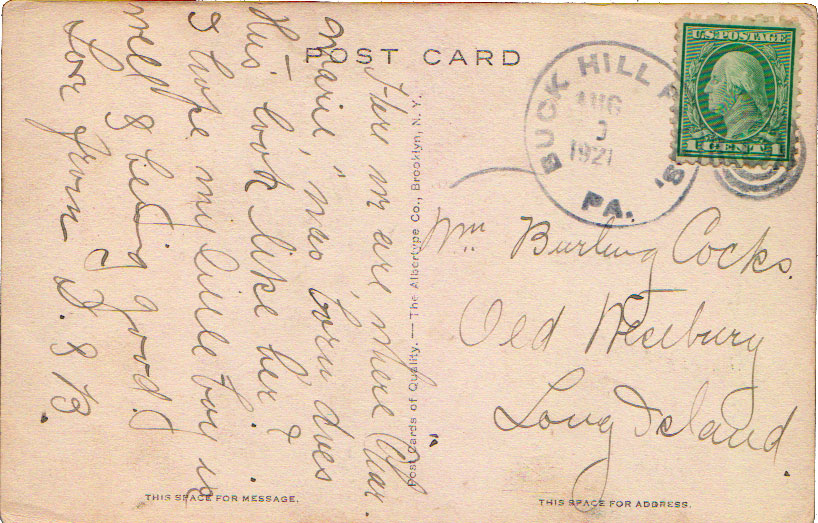 POST CARD
BUCK HILL FALLS
AUG
1921
PA.
U.S. POSTAGE
1 CENT 1
Wm Burling Cocks.
Old Westbury
Long Island.
Here we are, where "Char.
marie," was born does
this look like her &
I hope my little boy is
well & being good.
Love from D. & B.
Post Cards of Quality. — The Albertype Co., Brooklyn, N. Y.
THIS SPACE FOR MESSAGE.
THIS SPACE FOR ADDRESS.